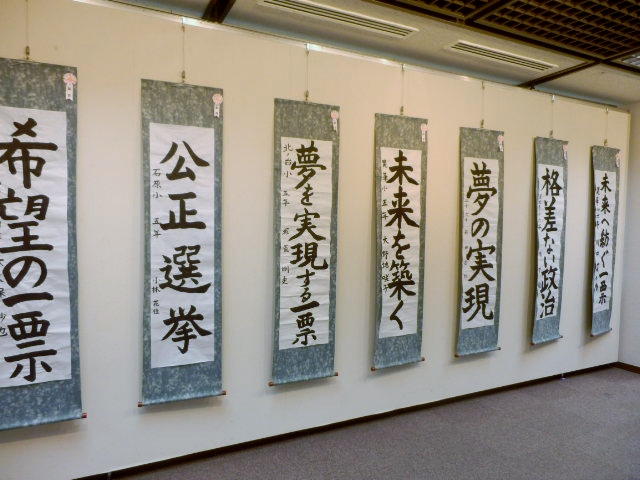 希望の一票
公正選挙
石原小 五年 小林 花佳
夢を実現する一票
北ノ台小 五年
未来を築く
小 五年
夢の実現
格差ない政治
未来へ紡ぐ一票